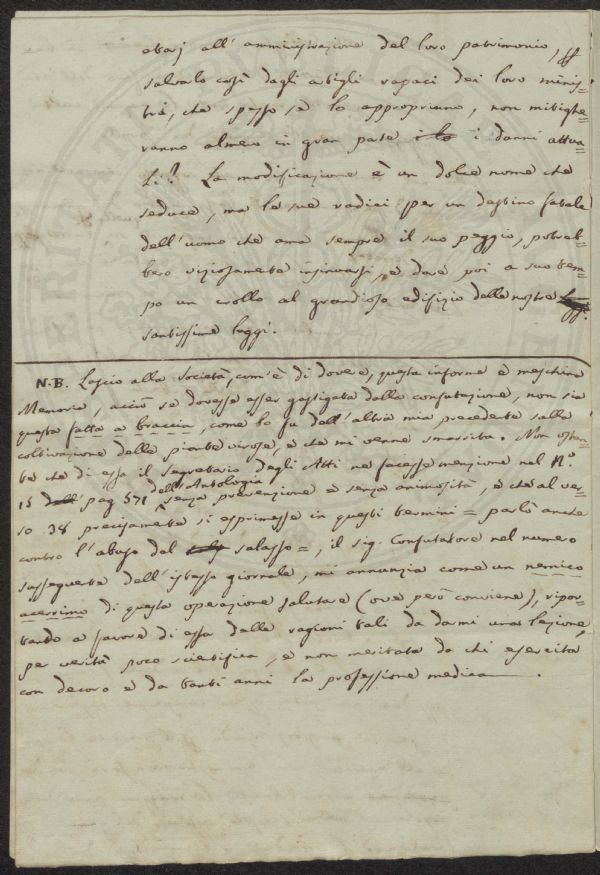 otarj all'amministrazione del loro patrimonio, 
salvarlo così dagli artigli rapaci dei loro minis=
tri, che spesso se lo appropriano, non mitighe=
ranno almeno in gran parte i danni attua=
li? La modificazione è un dolce nome che
seduce, ma le sue radici per un destino fatale
dell'uomo che ama sempre il suo peggio, potreb=
bero viziosamente insinuarsi, e dare poi a suo tem=
po un crollo al grandioso edifizio delle nostre
santissime leggi.
N.B. Lascio alla Società, com'è di dovere, questa informe e meschina
Memoria, acciò se dovesse esser gastigata dalla confutazione, non sia
questa fatta a braccia, come lo fu dall'altra mia precedente sulla
coltivazione delle piante virose, e che mi venne smarrita. Non ostan=
te che di essa il Segretario degli Atti ne facesse menzione nel N.º
15 dell'Antologia pag. 571 senza prevenzione e senza animosità, e che al ver=
so 38 precisamente si esprimesse in questi termini = parlò anche
contro l'abuso del salasso =, il sig. Confutatore nel numero
susseguente dell'istesso giornale, mi annunzia come un nemico
acerrimo di questa operazione salutare (ove però conviene), ripor=
tando a favore di essa delle ragioni tali da darmi una lezione,
per verità poco scientifica, e non meritata da chi esercita
con decoro e da tanti anni la professione medica.